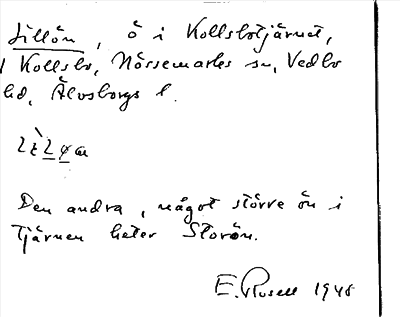 Lillön, ö i Kollsbotjärnet,
Kollsbo, Nössemarks sn, Vedbo
hd, Älvsborgs l.
Den andra, något större ön i
tjärnen heter Storön.
E. Rosell 1948